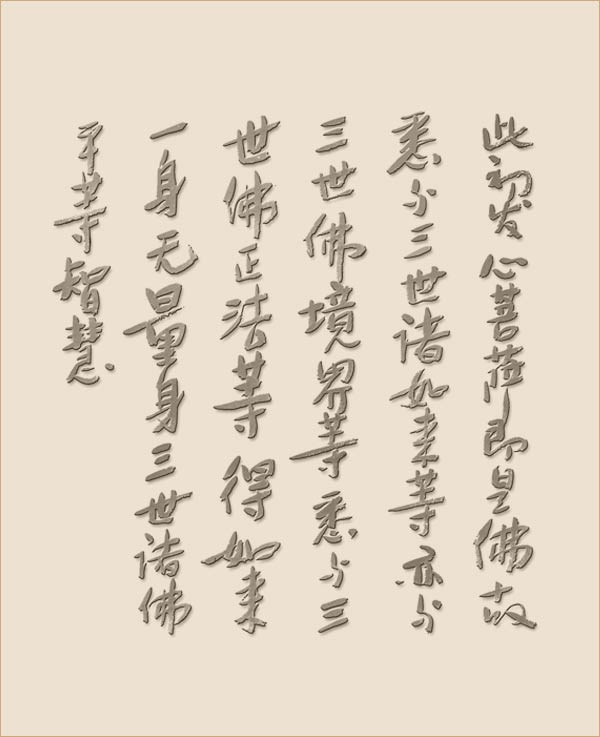 此初发心菩萨即是佛故
悉与三世诸如来等亦与
三世佛境界等悉与三
世佛正法等得如来
一身无量身三世诸佛
平等智慧